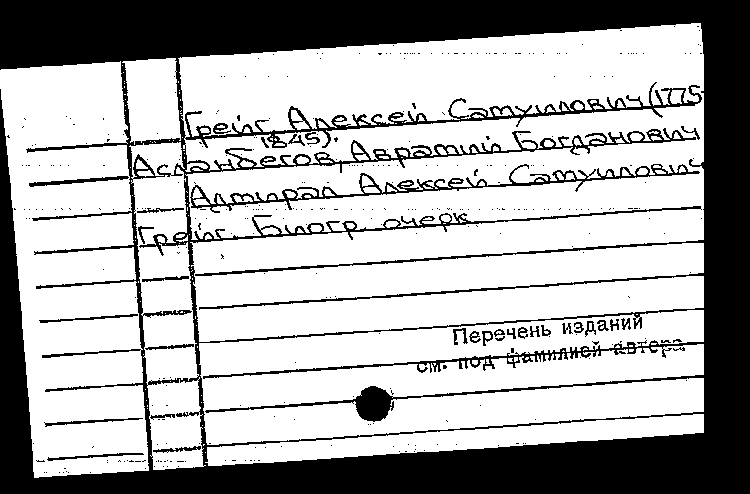 Грейг, Алексей Самуилович (1775-
1845).
Асланбегов, Авраамий Богданович
Адмирал Алексей Самуилович
Грейг. Биогр. очерк.
Перечень изданий
см. под фамилией автора